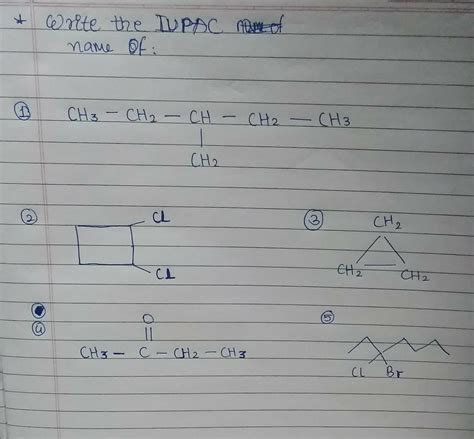 * Write the IUPAC
name Of:
① CH3 – CH2 – CH – CH2 – CH3
CH2
② Cl
Cl
③ CH2
CH2 CH2
④ O
CH3 – C – CH2 – CH3
⑤ Cl Br